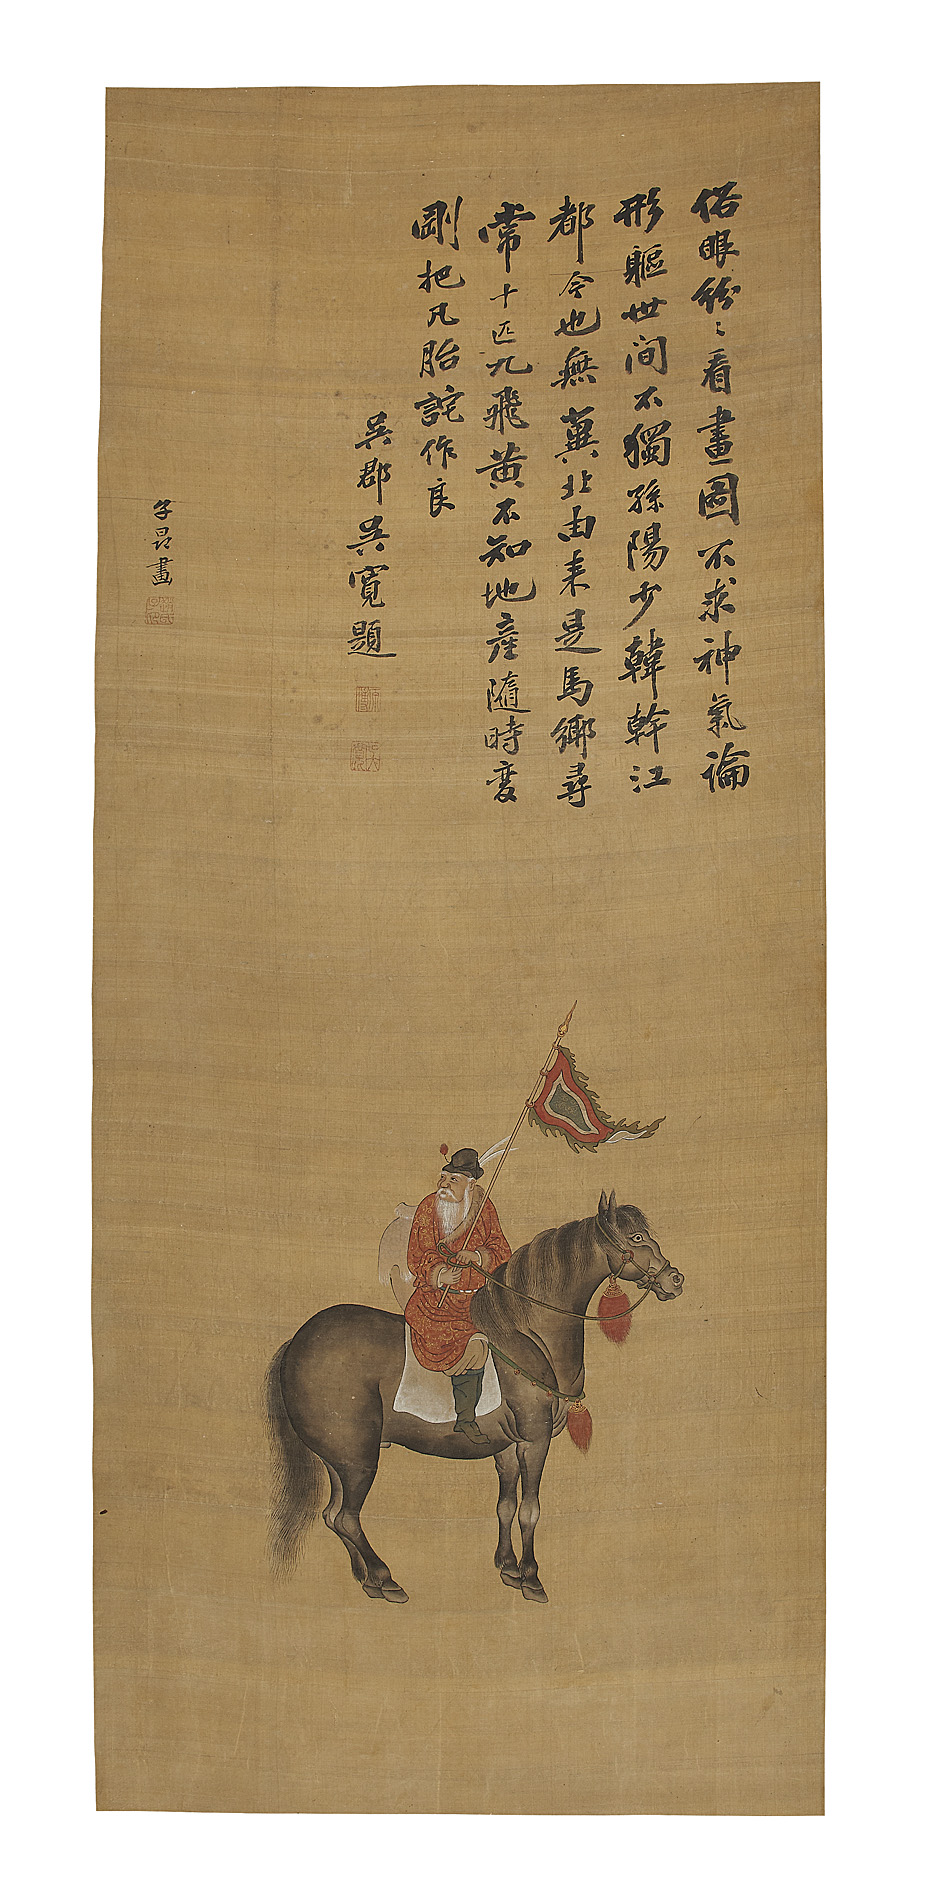 俗眼紛〻看畫圖不求神氣論
形軀世间不獨孫陽少韓幹江
都今也無冀北由来是馬鄉尋
常十匹九飛黄不知地産隨時変
剛把凡胎詫作良
吳郡吳寛題
子昻畫